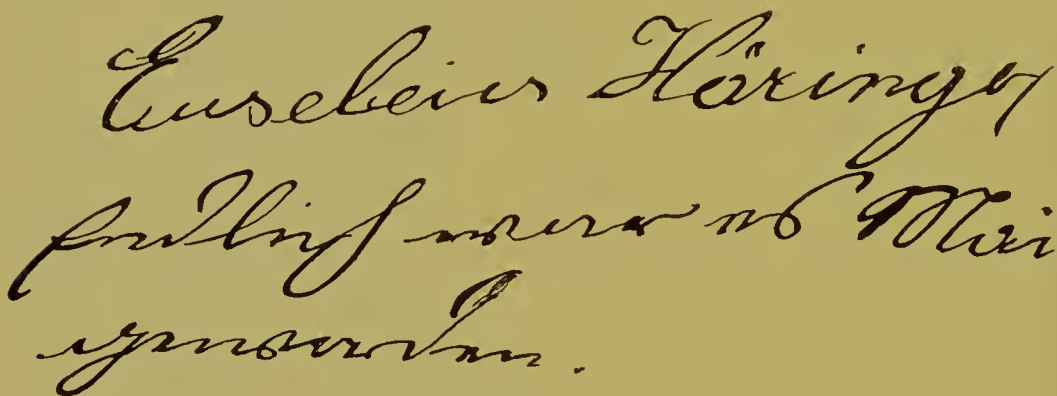 Eusebeius Häringer
Endlich war es Mai
geworden.